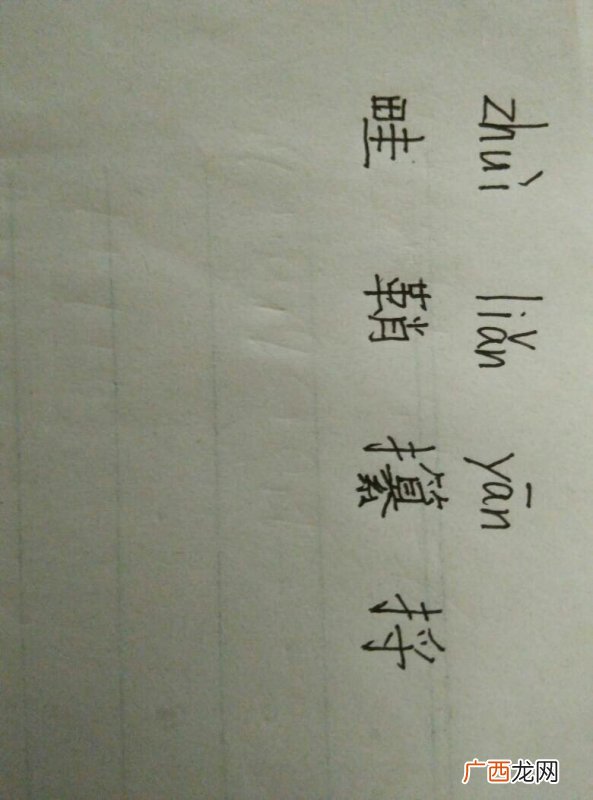 zhuì liǎn yān
畦 鞘 攥 捋
广西龙网